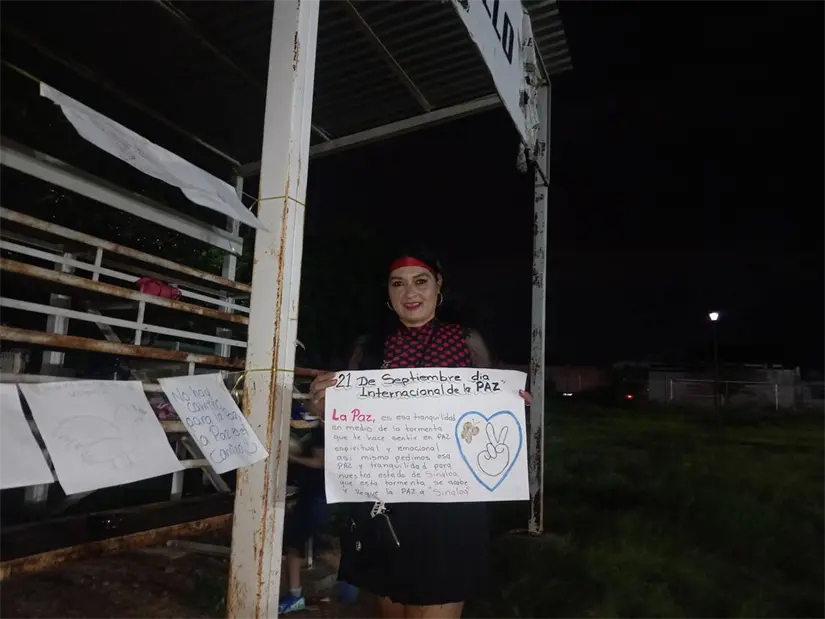 LLO
21 De Septiembre dia
Internacional de la PAZ"
La Paz, es esa tranquilidad
en medio de la tormenta
que te hace sentir en PAZ
espiritual y emocional
asi mismo pedimos esa
PAZ y tranquilidad para
nuestro estado de Sinaloa
que esta tormenta se acabe
y llegue la PAZ a "Sinaloa"
No hay
camino
para la Paz
la Paz es el
camino